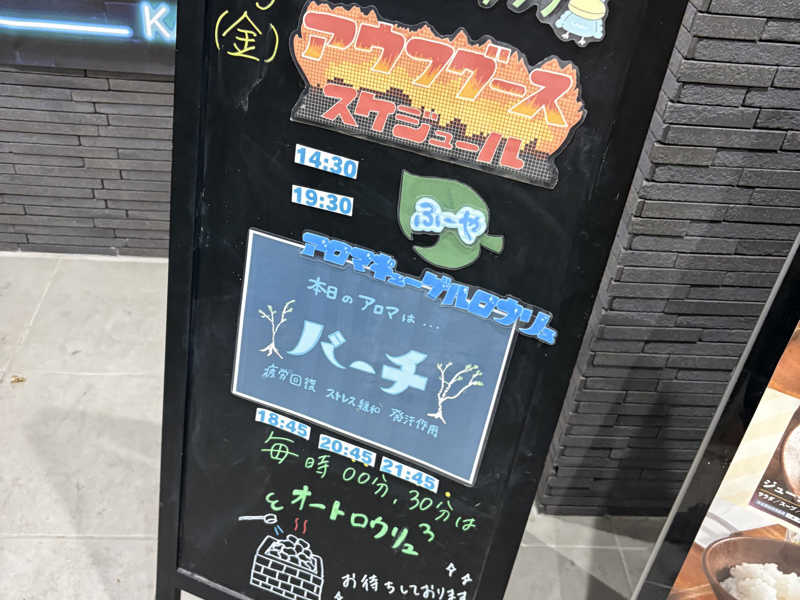 (金)
アウフグース
スケジュール
14:30
19:30
ふーや
アロマキューゲルロウリュ
本日のアロマは...
バーチ
疲労回復 ストレス緩和 発汗作用
18:45
20:45
21:45
毎時00分、30分は
オートロウリュ
お待ちしております
K
ジュー
サラダ/スープ